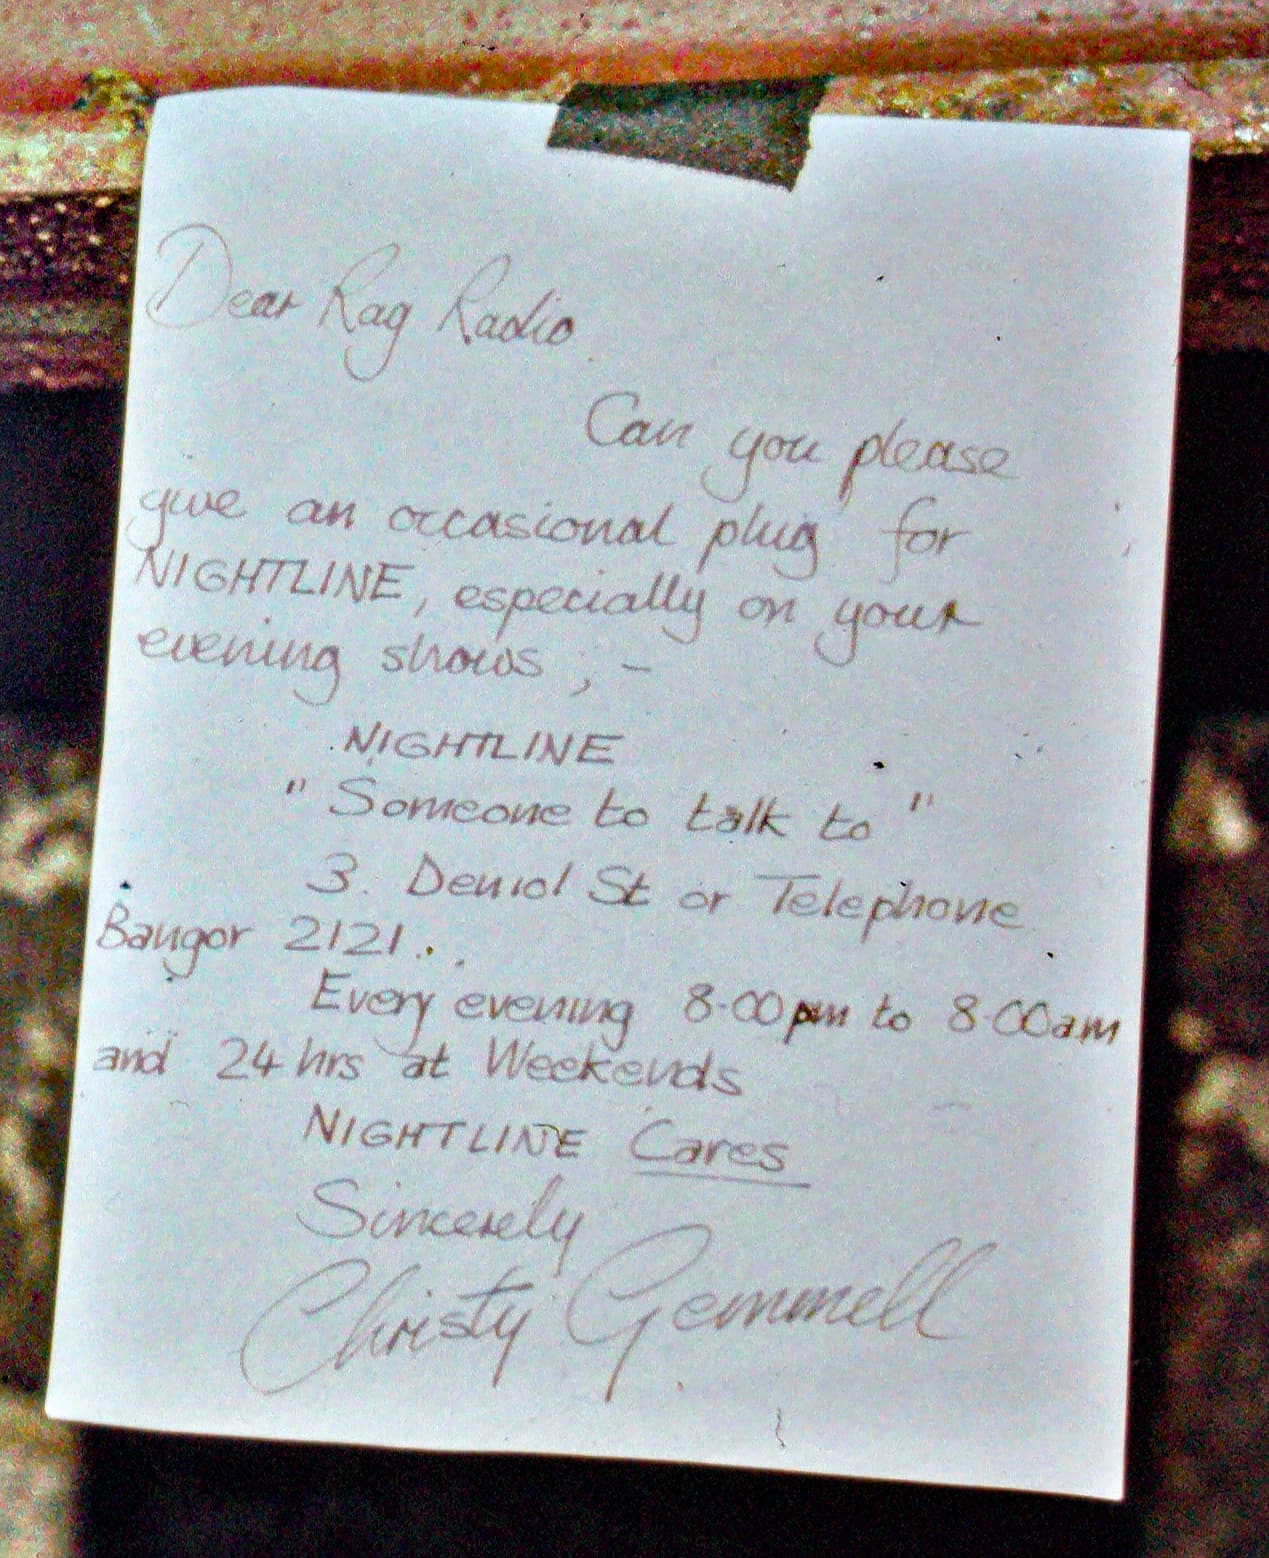 Dear Rag Radio
Can you please
give an occasional plug for
NIGHTLINE, especially on your
evening shows ; -
NIGHTLINE
" Someone to talk to "
3. Deniol St or Telephone
Bangor 2121..
Every evening 8-00pm to 8-00am
and 24 hrs at Weekends
NIGHTLINE Cares
Sincerely
Christy Gemmell